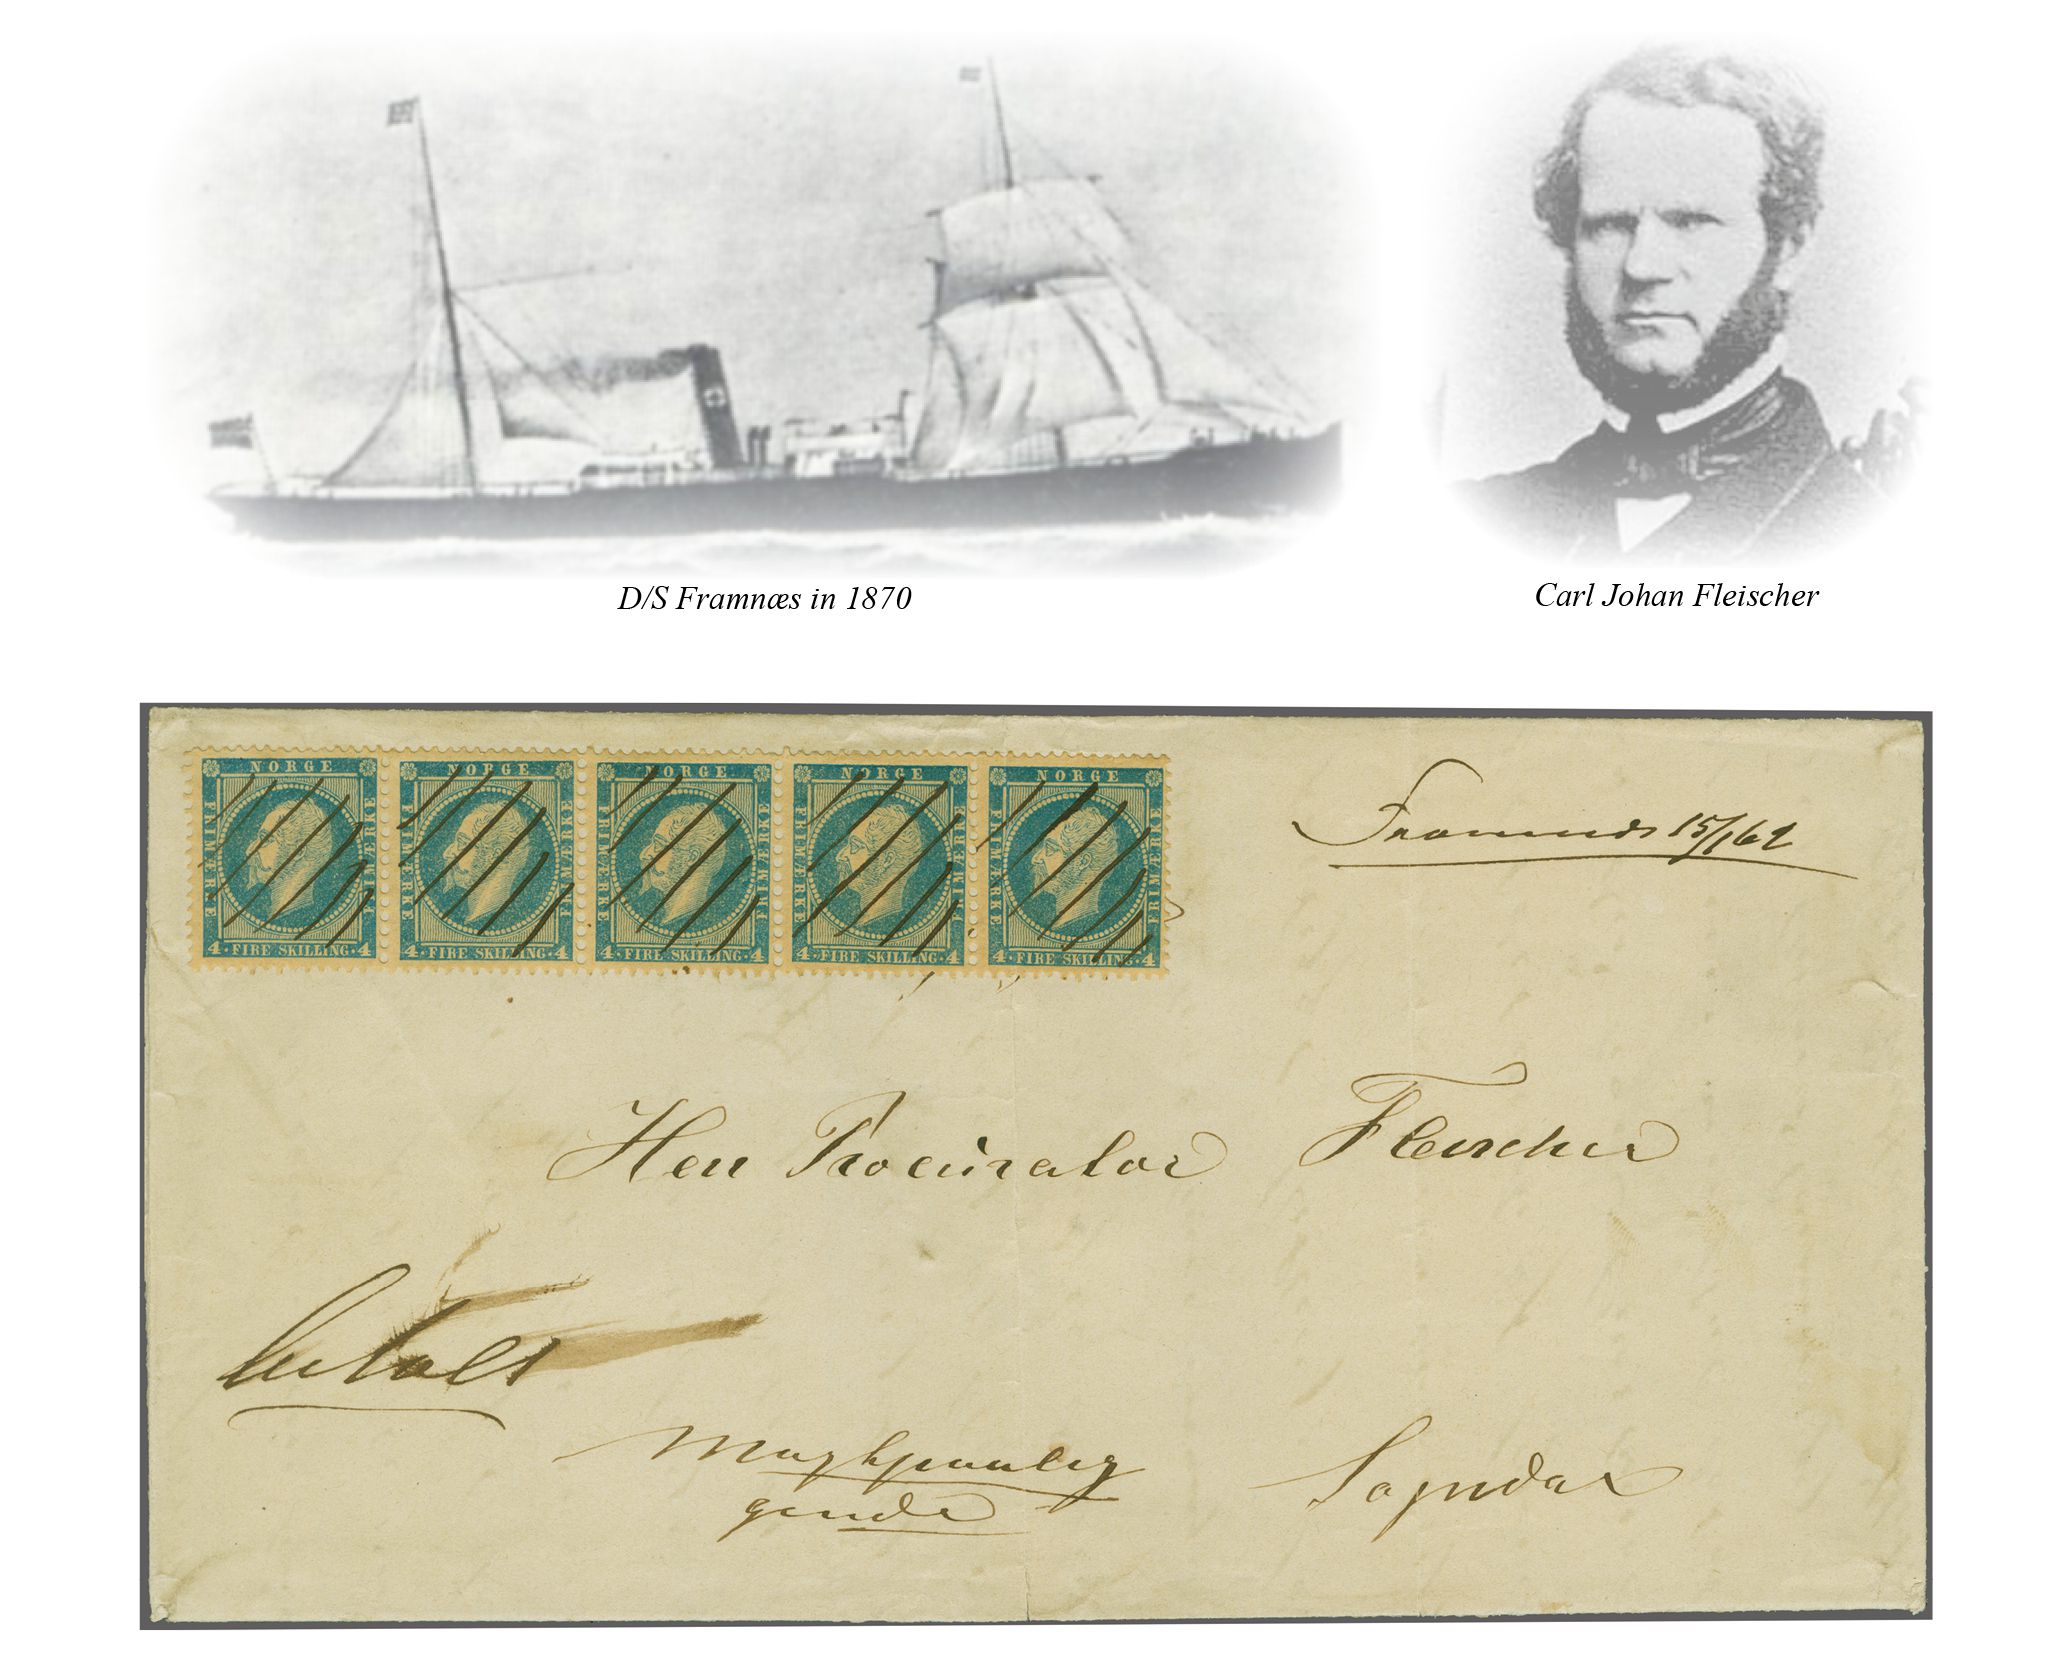 D/S Framnæs in 1870
Carl Johan Fleischer
NORGE FRIMÆRKE FRIMÆRKE 4·FIRE SKILLING·4
NORGE FRIMÆRKE FRIMÆRKE 4·FIRE SKILLING·4
NORGE FRIMÆRKE FRIMÆRKE 4·FIRE SKILLING·4
NORGE FRIMÆRKE FRIMÆRKE 4·FIRE SKILLING·4
NORGE FRIMÆRKE FRIMÆRKE 4·FIRE SKILLING·4
Framnæs 15/1 62
Herr Procurator Fleischer
betalt
Sogndal